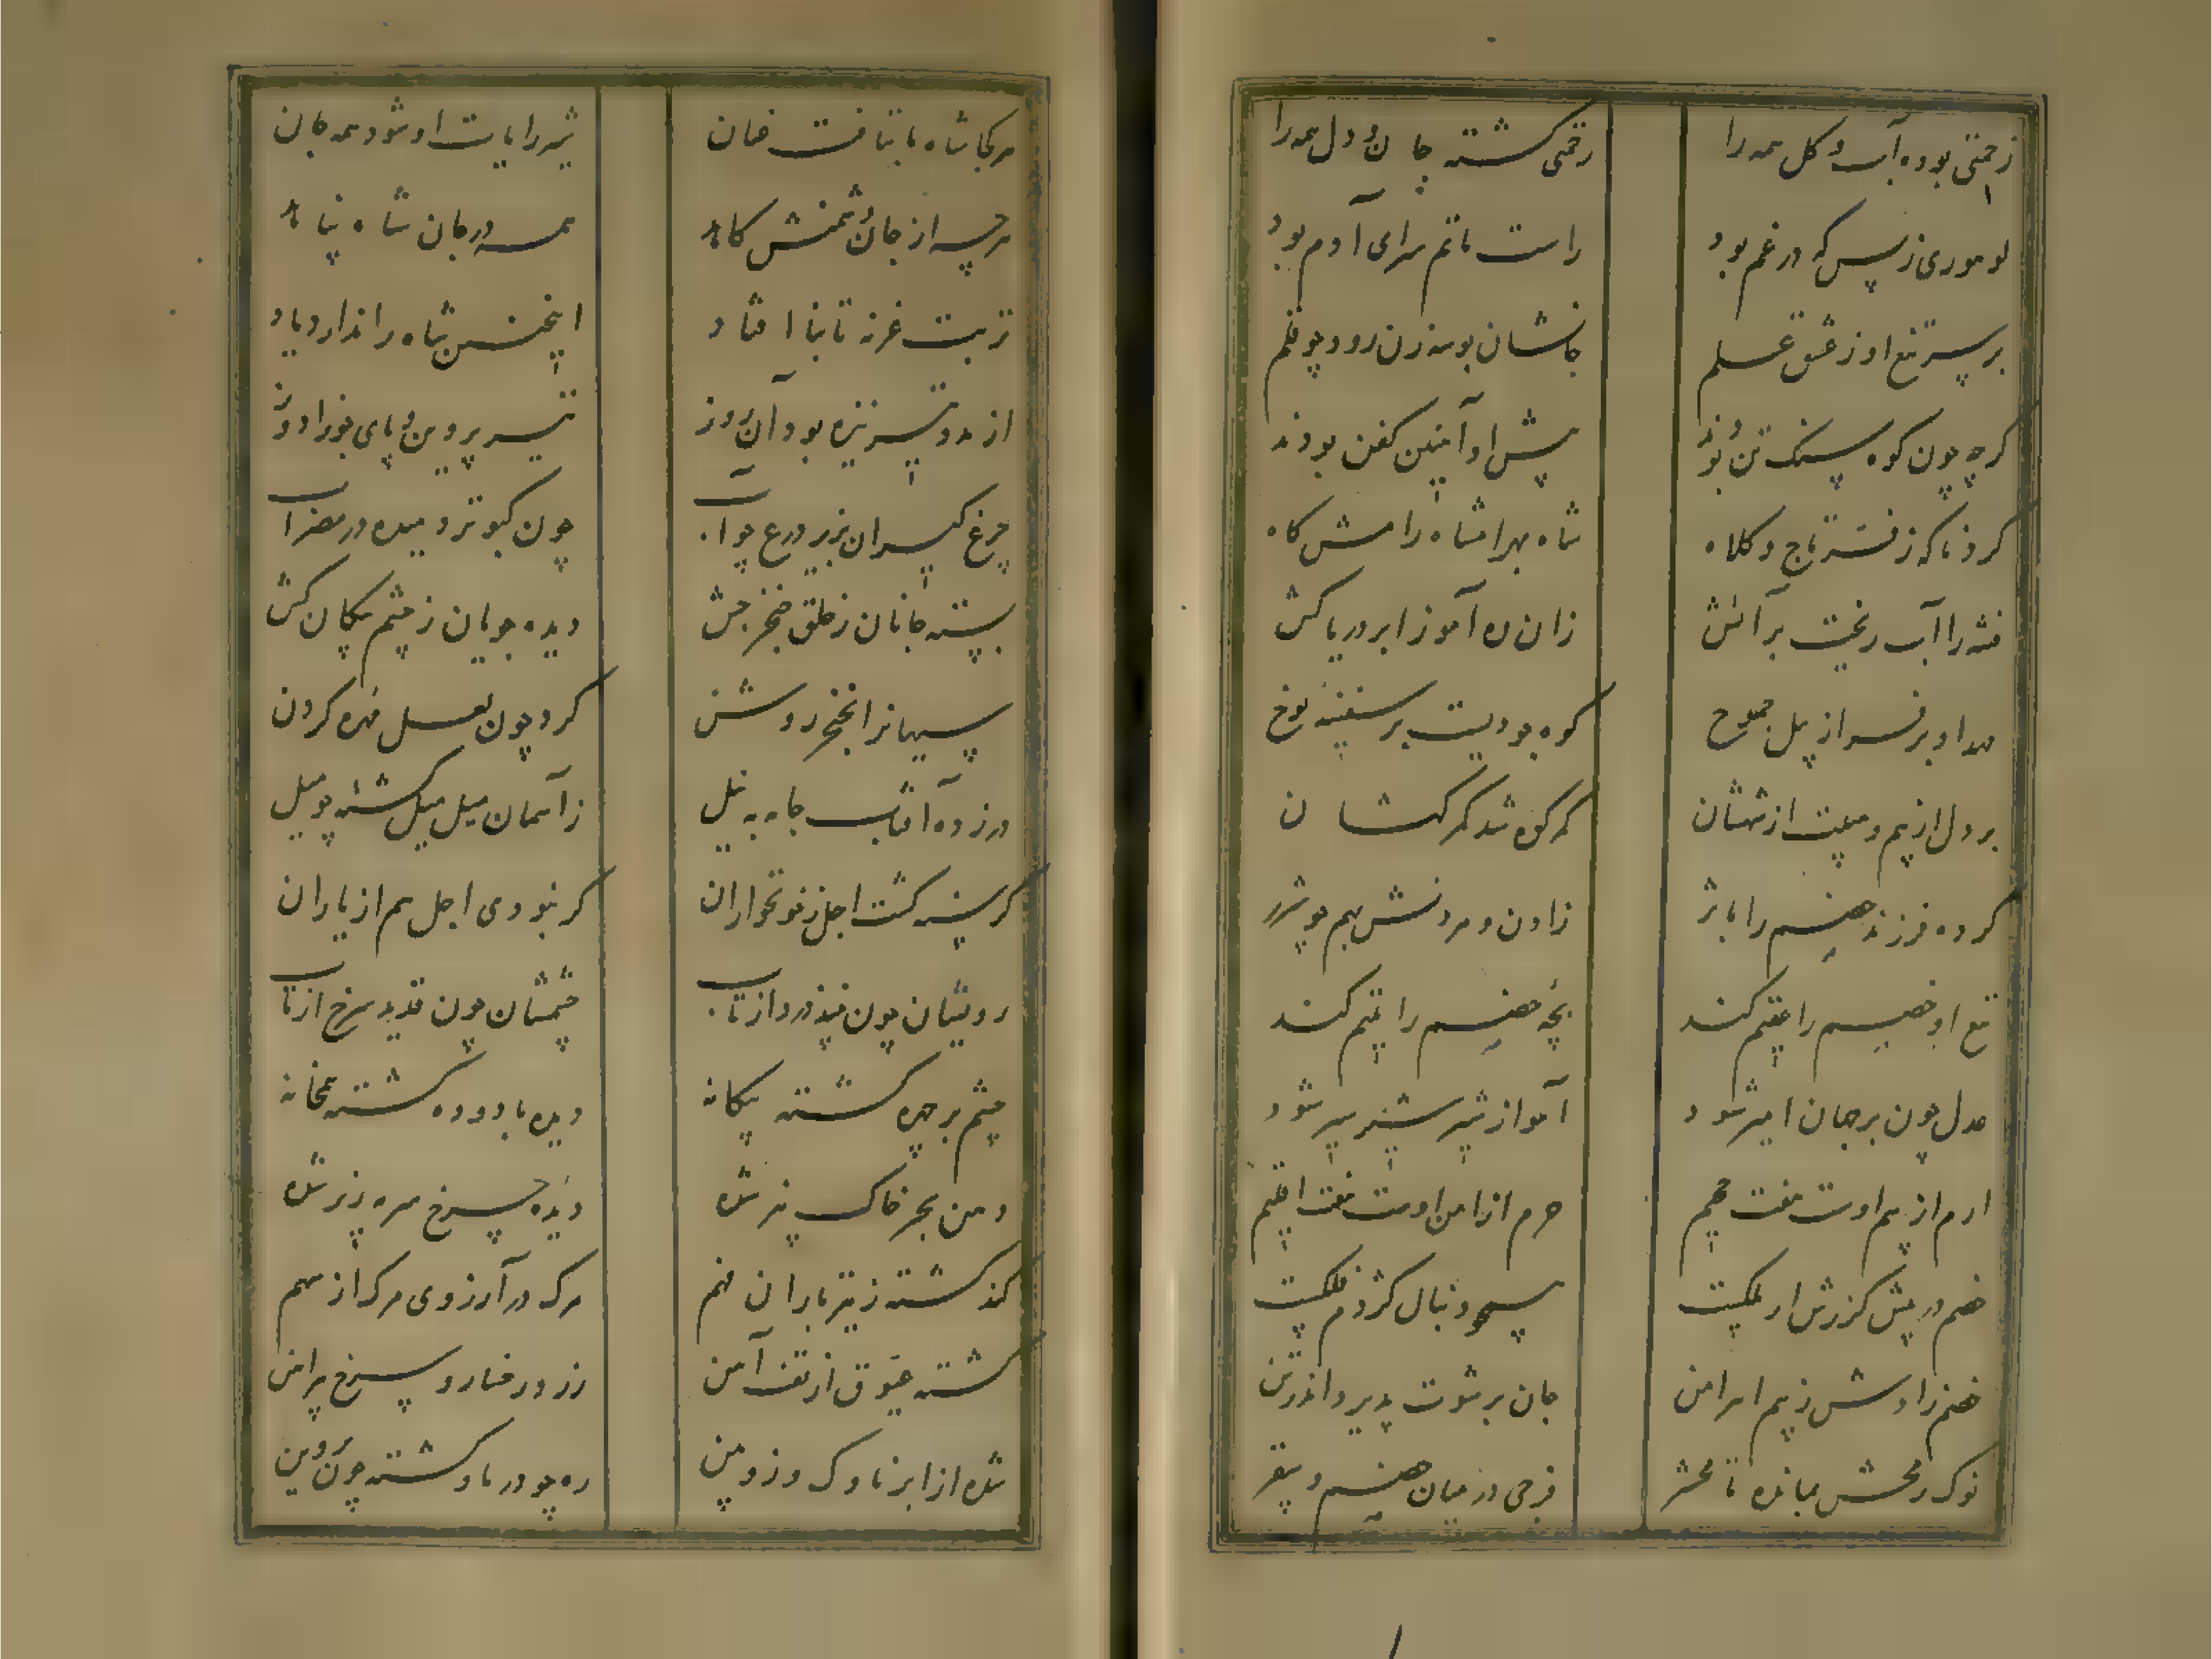 زحمتی بوده آب و گل همه را رحمتی گشته جان و دل همه را
لوهوری ز پس که در غم بود راست ماتم سرای آدم بود
بر سر تیغ او ز عشق علم جانشان بوسه زن رود چو قلم
کرچه چون کوه سنک تن بودند پیش او آبنین کفن بودند
کرد ناکه ز فتنه تاج و کلاه شاه بهرامشاه رامش کاه
فتنه را آب ریخت بر آتش زان ده آموز ابر دریا کش
مهد او بر فراز پیل جموح کوه جودیست بر سفینه نوح
بر دل از بیم و هیبت از شهشان کمر کوه شد کمر کهشان
کرده فرزند خصم را بابژ زادن و مردنش بهم چو شرر
تیغ او خصم را عقیم کند بچه خصم را یتیم کند
عدل چون بر جهان امیر شود آهو از شیر شیر سیر شود
ارم از بیم اوست هفت جحیم حرم از امن اوست هفت اقلیم
خصم در پیش کرزش ار ملکیست همچو دنبال کژدم فلکیست
خصم زادش ز بیم اهرامن جان برشوت پدیرد اندر تن
نوک رمحش بمانده تا محشر فرجی در میان خصم و سقر
هر کجا شاه ما بتافت عنان شیر رایات او شود همه جان
هر چه از جان دشمنش کاهد همه در جان شاه پناهد
تربت غزنه تا بنا افتاد اینچنین شاه را ندارد یاد
از مدد تیر نیزه بود آن روز تیر پروین و پای جوزا دوز
چرغ کیران بزیر درع چو آب چون کبوتر دمیده در مضراب
بسته جانان ز حلق خنجر چش دیده جویان ز چشم پیکان کش
سپهانرا بخنجر روشن کرد چون لعل مهره کردن
درزده آفتاب جامه به نیل ز آسمان میل میل کشته چو میل
کرسنه کشت اجل ز خونخواران کر نبودی اجل هم از یاران
رویشان چون نبیذ درد از تاب چشمشان چون قدید سرخ از تاب
چشم بر چهره کشته پیکانه دیده با دوده کشته همخانه
دهن بحر خاک بیز شده دیده چرخ سرمه ریز شده
کند کشته ز تیر باران فهم مرک در آرزوی مرک از سهم
کشته عیوق از تف آهن زرد رخسار و سرخ پیراهن
شده از ابر ناوک و زوبین ره چو در باد کشته چون پروین